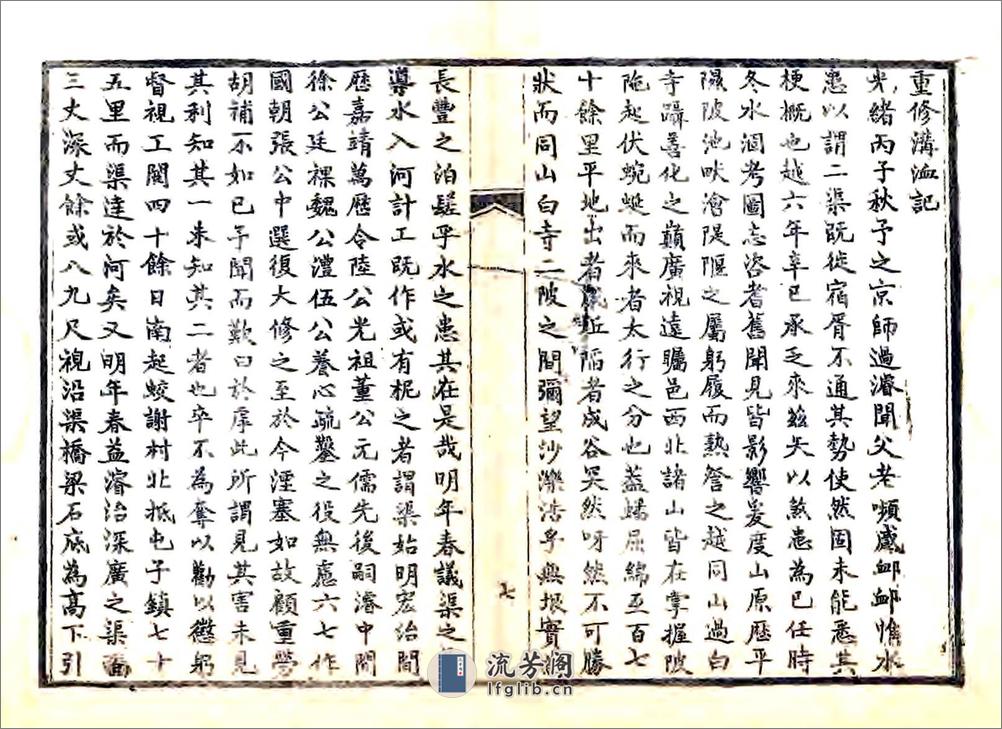 重修溝洫記
光緒丙子秋予之京師過濬聞父老嚬蹙卹卹惟水
患以謂二渠既徙宿胥不通其勢使然固未能悉其
梗概也越六年辛巳承乏來茲矢以煞患為己任時
冬水涸考圖志咨耆舊聞見皆影響爰度山原歷平
隰陂池畎澮隄隁之屬躬履而熟詧之越同山過白
寺躡善化之巔廣視遠矚邑西北諸山皆在掌握陂
陁起伏蜿蜒而來者太行之分也蓋蟠屈綿亙百七
十餘里平地出者成丘陷者成谷突然呀然不可勝
狀而同山白寺二陂之間彌望沙濼浩乎無垠實
七
長豐之泊髭乎水之患其在是哉明年春議渠之
導水入河計工既作或有柅之者謂渠始明宏治間
歷嘉靖萬歷令陸公光祖董公元儒先後嗣濬中間
徐公廷祼魏公澧伍公養心疏鑿之役無慮六七作
國朝張公中選復大修之至於今湮塞如故顧重勞
胡補不如已予聞而歎曰於虖此所謂見其害未見
其利知其一未知其二者也卒不為奪以勸以懲躬
督視工閱四十餘日南起蛟謝村北抵屯子鎮七十
五里而渠達於河矣又明年春益濬治深廣之渠面
三丈深丈餘或八九尺視沿渠橋梁石底為高下引
流芳阁
lfglib.cn